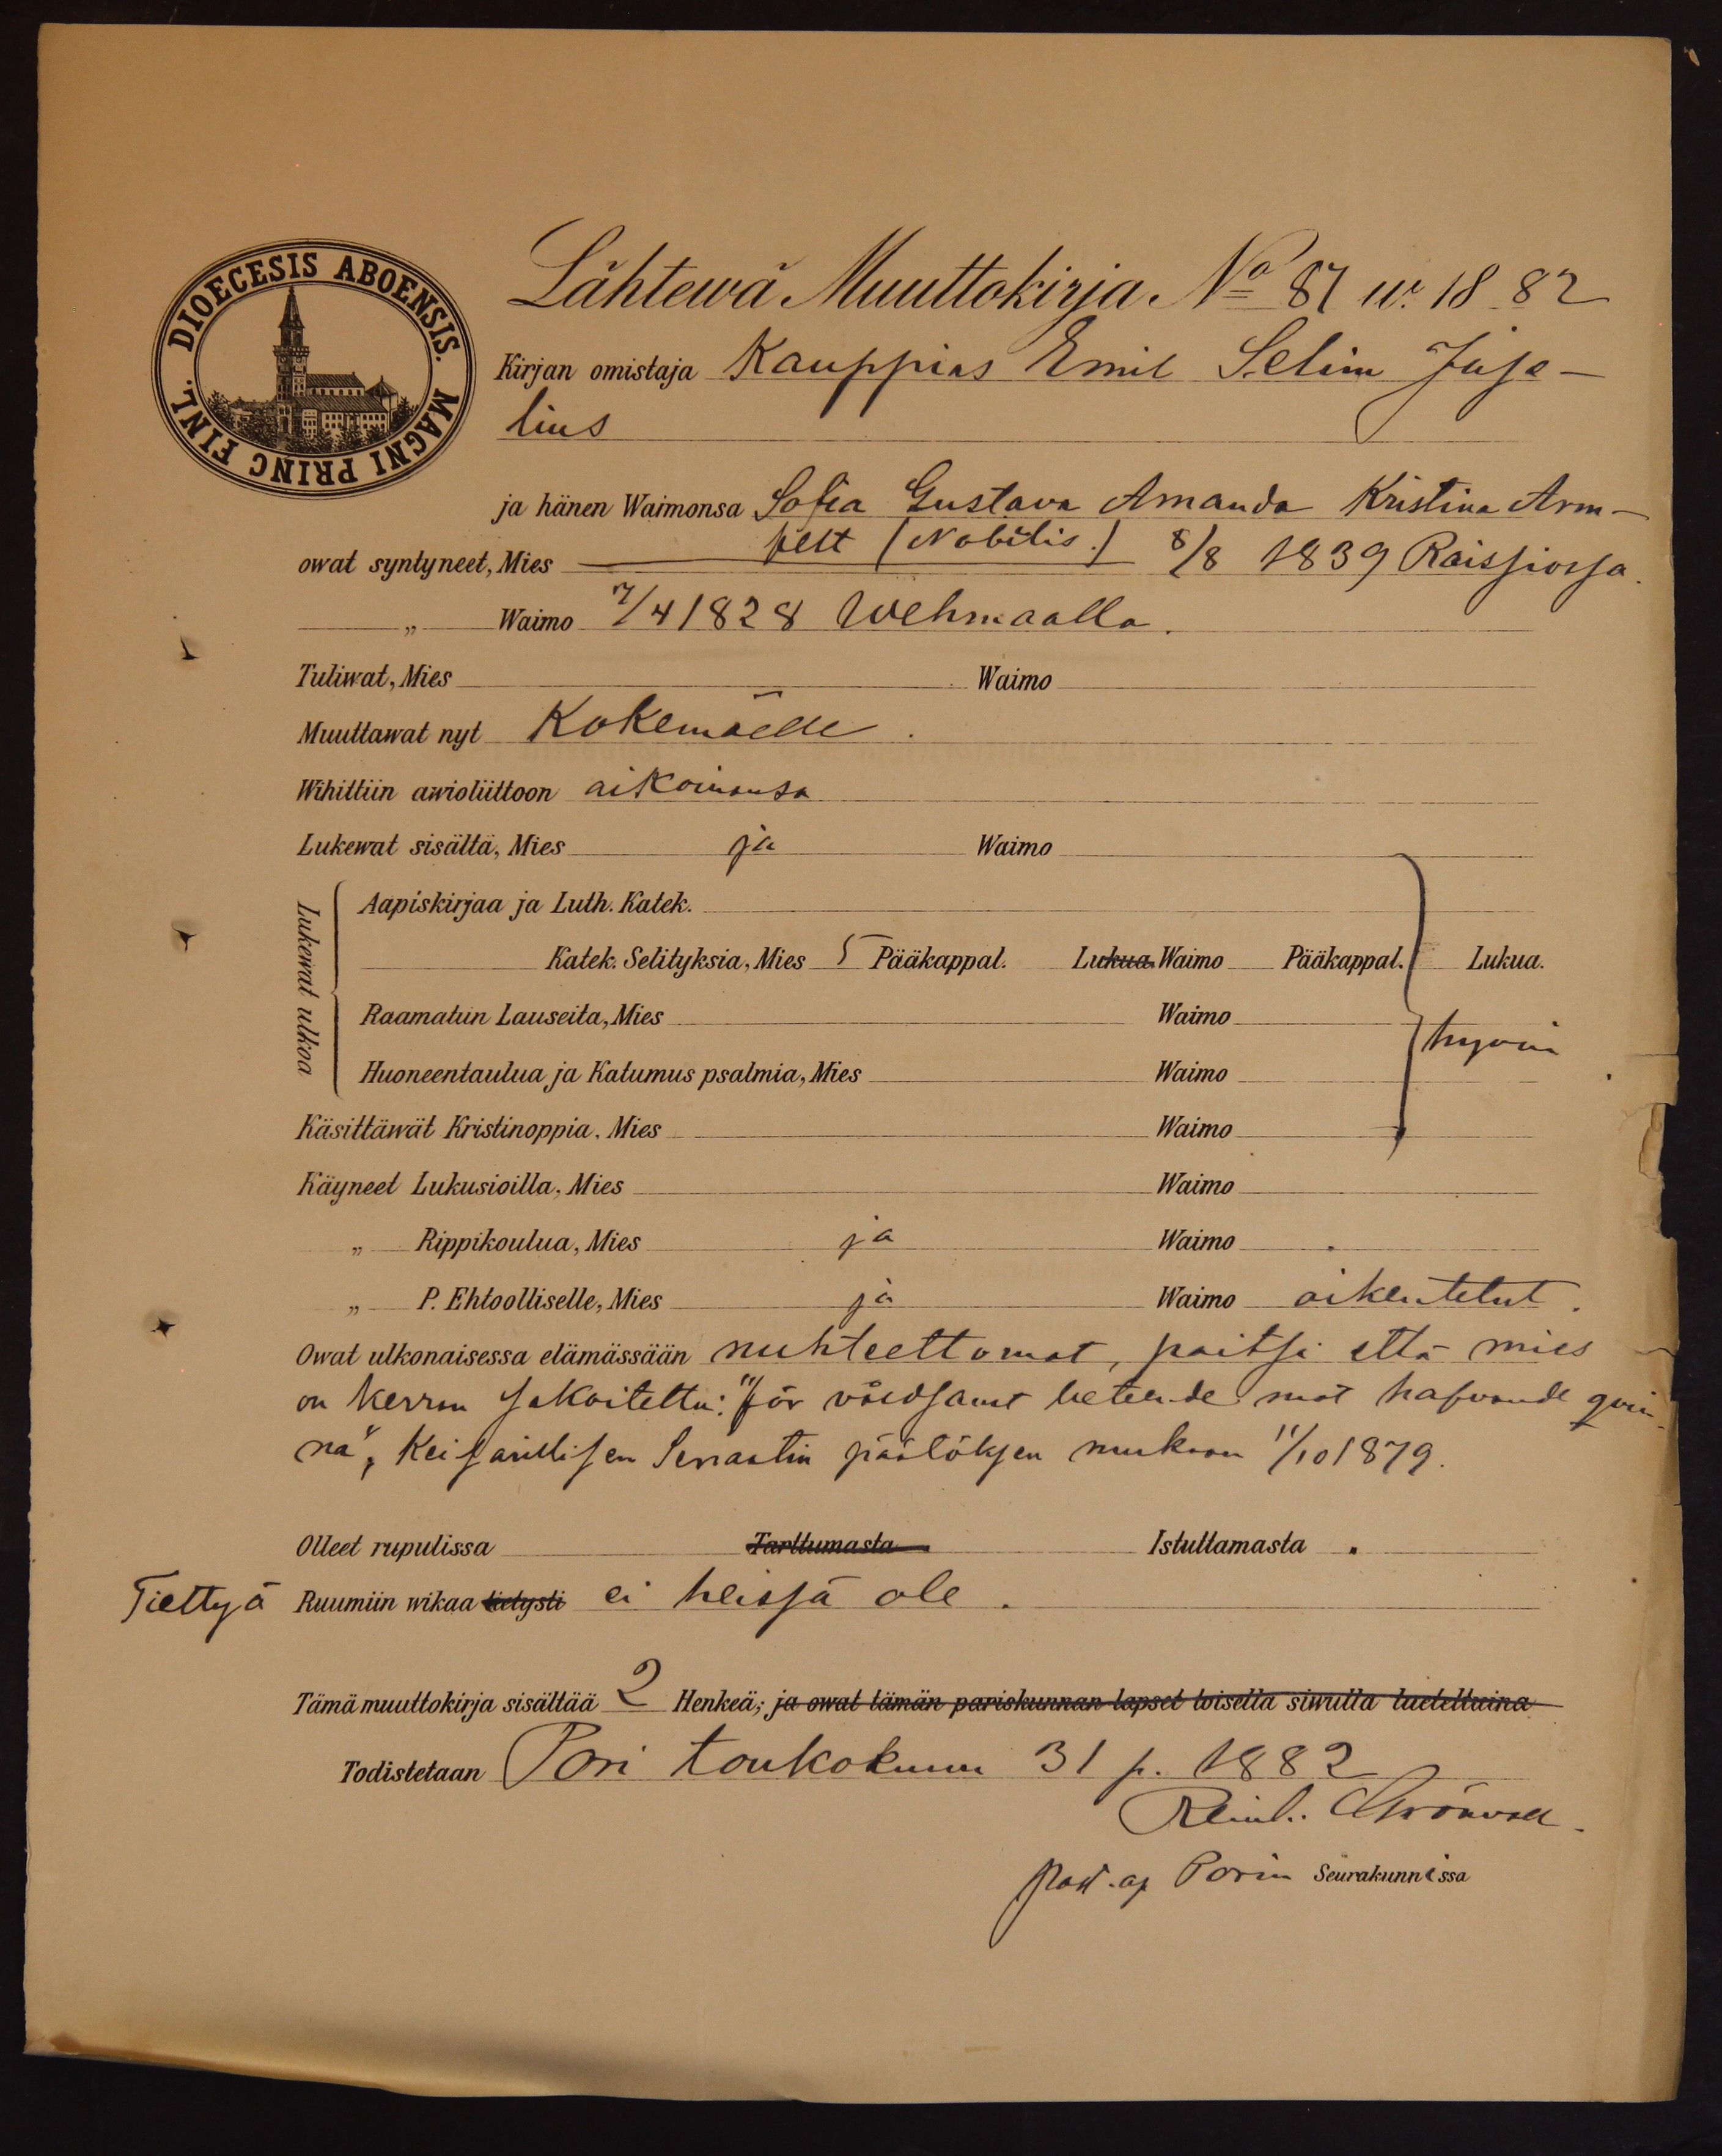 DIOECESIS ABOENSIS. MAGNI PRINC FINL.
Lähtewä Muuttokirja No 87 w. 1882
Kirjan omistaja Kauppias Emil Selim Juse-
lius
ja hänen Waimonsa Sofia Gustava Amanda Kristina Arm-
felt (Nobilis.)
owat syntyneet, Mies 8/8 1839 Raissiossa.
„ Waimo 7/4 1828 Wehmaalla.
Tuliwat, Mies Waimo
Muuttawat nyt Kokemäelle.
Wihittiin awioliittoon aikoinansa
Lukewat sisältä, Mies ja Waimo
Lukewat ulkoa
Aapiskirjaa ja Luth. Katek.
Katek. Selityksiä, Mies 5 Pääkappal. Lukua. Waimo Pääkappal. Lukua.
Raamatun Lauseita, Mies Waimo
hyvin
Huoneentaulua ja Katumus psalmia, Mies Waimo
Käsittäwät Kristinoppia, Mies Waimo
Käyneet Lukusioilla, Mies Waimo
„ Rippikoulua, Mies ja Waimo
„ P. Ehtoolliselle, Mies ja Waimo oikeutetut.
Owat ulkonaisessa elämässään nuhteettomat, paitsi että mies
on kerran sakoitettu: "för våldsamt beteende mot hafvande qvin-
na", Keisarillisen Senaatin päätöksen mukaan 11/10 1879.
Olleet rupulissa Tarttumasta Istuttamasta
Tiettyä Ruumiin wikaa tietysti ei heissä ole.
Tämä muuttokirja sisältää 2 Henkeä; ja owat tämän pariskunnan lapset toisella siwulla lueteltuina
Todistetaan Pori toukokuun 31 p. 1882
Reinh. Grönvall.
Past. ap Porin Seurakunnissa